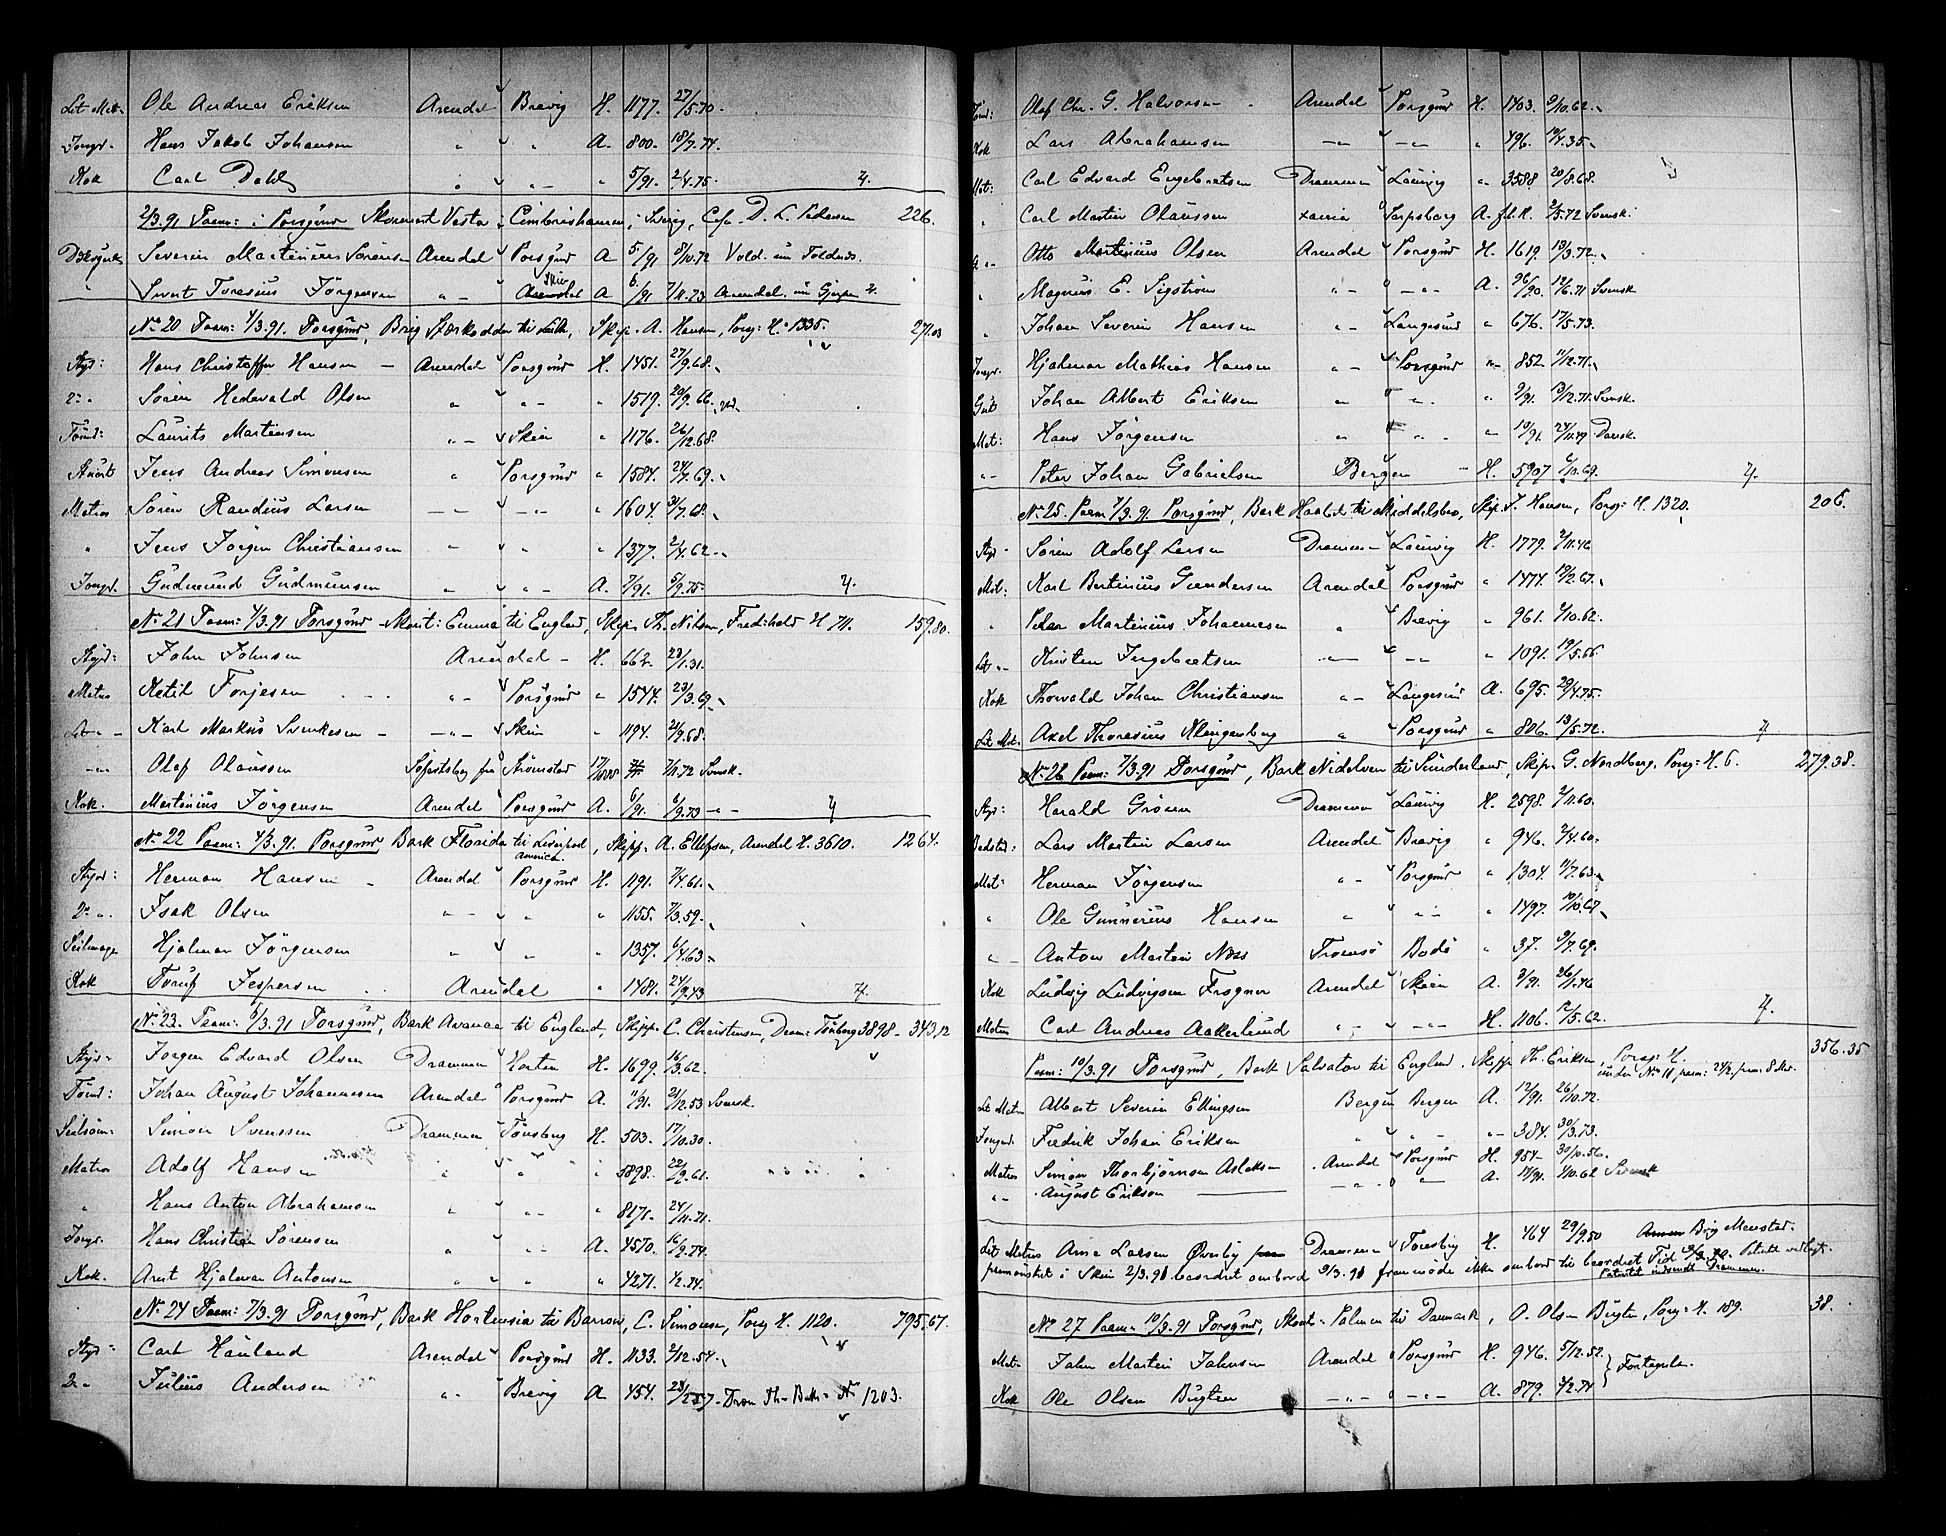 Let Mat. Ole Andreas Eriksen Arendal Brevig H. 1177. 27/5.70.
Jongd. Hans Jakob Johansen „ „ A. 800. 18/7.74.
Kok Carl Dahl „ „ „ 5/91. 2/4.75. 4.
2/3.91 Paam: i Porsgrund Skonnert Vesta, Cimbrishamn, i Sverig, Cap. D. L. Pedersen 226.
Severin Martinius Sörensen Arendal Porsgrund A 5/91 8/10.72
„ Toresius Jörgensen „ Skien A 6/91 7/11.73 Arendal.
No 20 Paam: 4/3.91. Porsgrund, Brig Stærkodder til Leith, Skip. A. Hansen, Porsg: H. 1335. 271.03
Styr: Hans Christoffer Hansen – Arendal Porsgrund H. 1451. 27/9.68.
2. „ Sören Hedevald Olsen „ „ „ 1519. 20/9.66.
Tömd: Laurits Martinsen „ Skien „ 1176. 26/12.68.
Stuert Jens Andreas Simonsen „ Porsgrund „ 1584. 24/7.69.
Matros Sören Randius Larsen „ „ „ 1604. 31/7.68.
„ Jens Jörgen Christiansen „ „ „ 1377. 2/4.62.
Jongd. Gudmund Gudmunsen „ „ A. 7/91. 5/9.75. 4.
No 21 Paam: 4/3.91 Porsgrund – Skont: Emma til England, Skip. Th. Nilsen, Fredrikshald H 711. 159.80.
Styrd: John Johnsen Arendal – H. 662. 23/1.31.
Matros Ketil Torjesen „ Porsgrund „ 1544. 23/3.69.
Let „ Karl Markus Svenkesen – „ Skien „ 1194. 21/9.68.
„ Olaf Olaussen Söfartsbog fra Strömstad 7/11.72 Svensk.
Kok. Martinius Jörgensen Arendal Porsgrund A. 6/91. 6/9.73 „ 4
No 22 Paam: 4/3.91. Porsgrund Bark Florida til Liverpool, Skipp. A. Ellefsen, Arendal H. 3610. 1264.
Styrd: Herman Hansen Arendal Porsgrund H. 1191. 7/4.61.
2. „ Isak Olsen „ „ „ 1155. 7/3.59.
Seilmager Hjalmar Jörgensen „ „ „ 1357. 6/4.63.
Kok Jespersen Arendal „ 1481. 24/9.43 4.
No 23. Paam: 6/3.91 Porsgrund, Bark Avance til England, Skipp. C. Christensen, Dram: Tönsberg 3898 – 343.12
Styr. Jörgen Edvard Olsen Drammen Horten H. 1699. 16/3.62.
Tömd: Johan August Johannesen Arendal Porsgrund A. 11/91. 21/12.53 Svensk.
Simon Svenssen Drammen Tönsberg H. 503. 17/10.30.
Matros Adolf Hansen „ „ „ 5898. 22/9.61.
„ Hans Anton Abrahamsen „ „ „ 8171. 24/11.71.
Jongd. Hans Christian Sörensen „ „ A. 4570. 16/9.74.
Kok. Arnt Hjalmar Antonsen „ „ „ 4271. 1/2.74.
No 24 Paam: 7/3.91 Porsgrund, Bark Hortensia til Barrow, C. Simonsen, Porsg H. 1120. 795.67.
Styr: Carl Hauland Arendal Porsgrund H. 1133. 2/12.54.
2. „ Julius Andersen „ Brevig A 454. Dram 1203.
Tömd: Olaf Chr. G. Halvorsen Arendal Porsgrund H. 1403. 9/10.62.
Kok Lars Abrahamsen „ „ „ 496. 19/4.35.
Mat: Carl Edvard Engebretsen Drammen Laurvig „ 3588 20/8.68.
„ Carl Martin Olaussen Sarpsborg A. 2/5.72 Svensk.
„ Otto Martinius Olsen Arendal Porsgrund H. 1619. 13/3.72.
„ Magnus E. Sigström „ „ A. 12/6.71 Svensk
„ Johan Severin Hansen „ Langesund „ 676. 17/5.73.
Jongd. Hjalmar Mathias Hansen „ Porsgrund „ 852 11/12.71.
Gut Johan Albert Eriksen „ „ „ 9/91. 13/12.71. Svensk.
Mat: Hans Jörgensen „ „ „ 10/91. 24/11.49 Dansk.
„ Peter Johan Gabrielsen Bergen – H. 5907 6/10.69. 4.
No 25. Paam 7/3.91 Porsgrund, Bark Haabet til Middelsbro, Skip. J. Hansen, Porsg: H. 1320. 206.
Styr – Sören Adolf Larsen Drammen Laurvig H. 1779. 2/11.46
Mat: Karl Bertinius Gundersen Arendal Porsgrund „ 1474. 19/2.67.
„ Peder Martinius Johannesen „ Brevig „ 961. 2/10.62.
Let „ Kristen Ingebretsen „ „ „ 1091. 19/5.66.
Kok Thorvald Johan Christiansen „ Langesund A. 695. 29/4.75.
Let Mat. Axel Thoresius Klingenberg „ Porsgrund „ 806. 13/5.72. 4
No 26 Paam: 7/3.91 Porsgrund, Bark Nidelven til Sunderland, Skip. G. Nordberg, Porsg: H. 6. 279.38.
Styr: Harald Grönn Drammen Laurvig H. 2598. 2/11.60.
Lars Martin Larsen Arendal Brevig „ 946. 7/4.60.
Mat: Herman Jörgensen „ Porsgrund „ 1304. 11/7.63
„ Ole Gunnerius Hansen „ „ „ 1497. 19/10.67
„ Anton Martin Næss Tromsö Bodö „ 37. 9/7.69.
Kok Ludvig Ludvigsen Frogner Arendal Skien A. 3/91. 26/1.46
Matros Carl Andreas Aakerlund „ „ H. 1106. 5/5.62. 4.
Paam: 10/3.91 Porsgrund, Bark Salvator til England, Skipp Th. Eriksen, Porsg: H. 356.35
under No 11 paam: 24/2
Let Matros Albert Severin Ellingsen Bergen Bergen A. 12/91. 26/10.72.
Jongmd. Fredrik Johan Eriksen „ „ „ 384. 30/3.73.
Matros Simon Thorbjörnsen Aslaksen Arendal Porsgrund H. 954 – 30/10.56.
„ August Erikson „ „ A. 14/91. 1/10.62 Svensk
Let Matros Arne Larsen Drammen Tönsberg H. 464 29/9.50 Brig Menstad.
paamönstret i Skien 2/3.91 beordret ombord 9/3.91 fremmöde ikke ombord til beordret Tid
No 27 Paam. 10/3.91 Porsgrund, Skont. Palmen til Danmark, O. Olsen Bugten, Porsg. H. 189. 38.
Mat. John Martin Johnsen Arendal Porsgrund H. 946. 5/12.52.
Kok Ole Olsen Bugten „ „ A. 879. 4/2.74